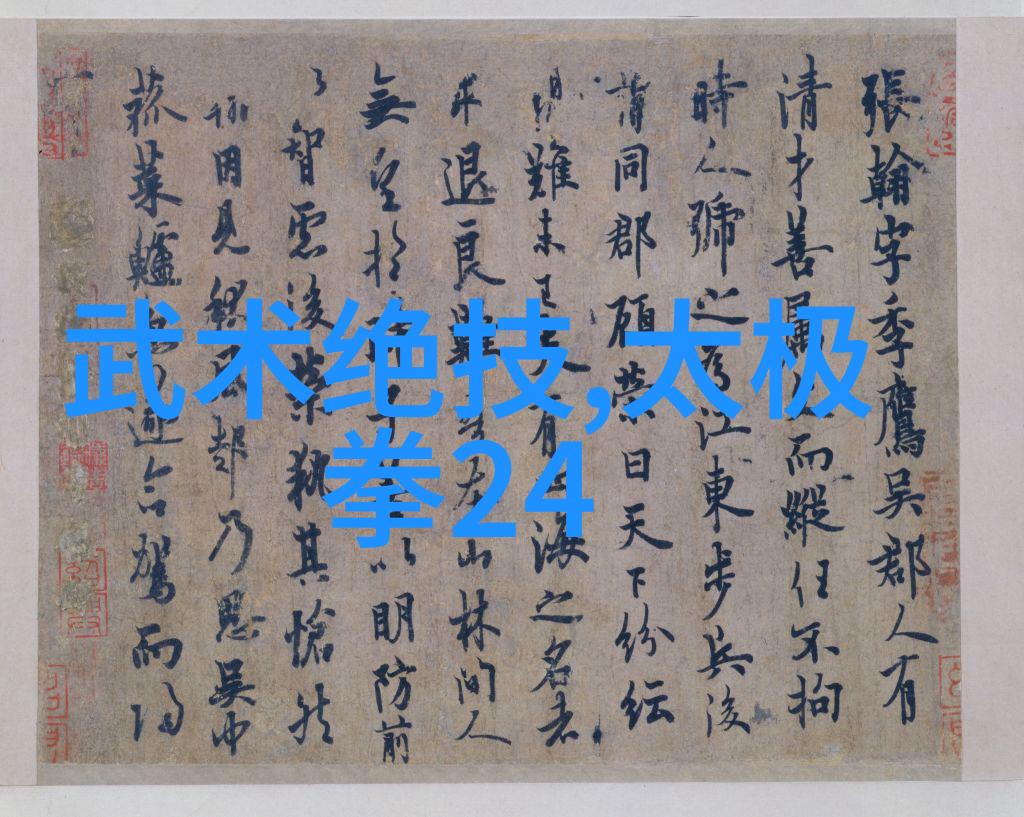 武术绝技,太极
拳24
張翰字季鷹吳郡人有
清才善屬而縱任不拘
時人號之為江東步兵後
同郡顧榮曰天下紛紜
難未已夫人有海之名者
求退良難吾本山林間人
無望於以明防前
以智慮後榮執其愴然
因見起乃思吳中
菰菜鱸遂命駕而歸